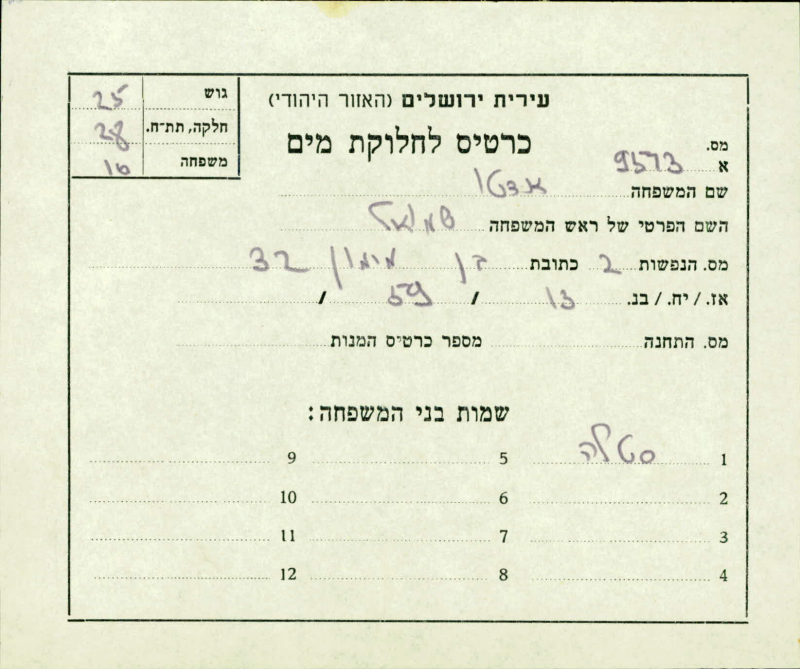 עירית ירושלים (האזור היהודי)
כרטיס לחלוקת מים
גוש 25
חלקה, תת־ח. 28
משפחה 16
מס.
א 9573
שם המשפחה
השם הפרטי של ראש המשפחה שמואל
מס. הנפשות 2 כתובת בן מימון 32
אז. / יח. / בנ. 13 / 59 /
מס. התחנה מספר כרטיס המנות
שמות בני המשפחה:
1 סטלה 5 9
2 6 10
3 7 11
4 8 12